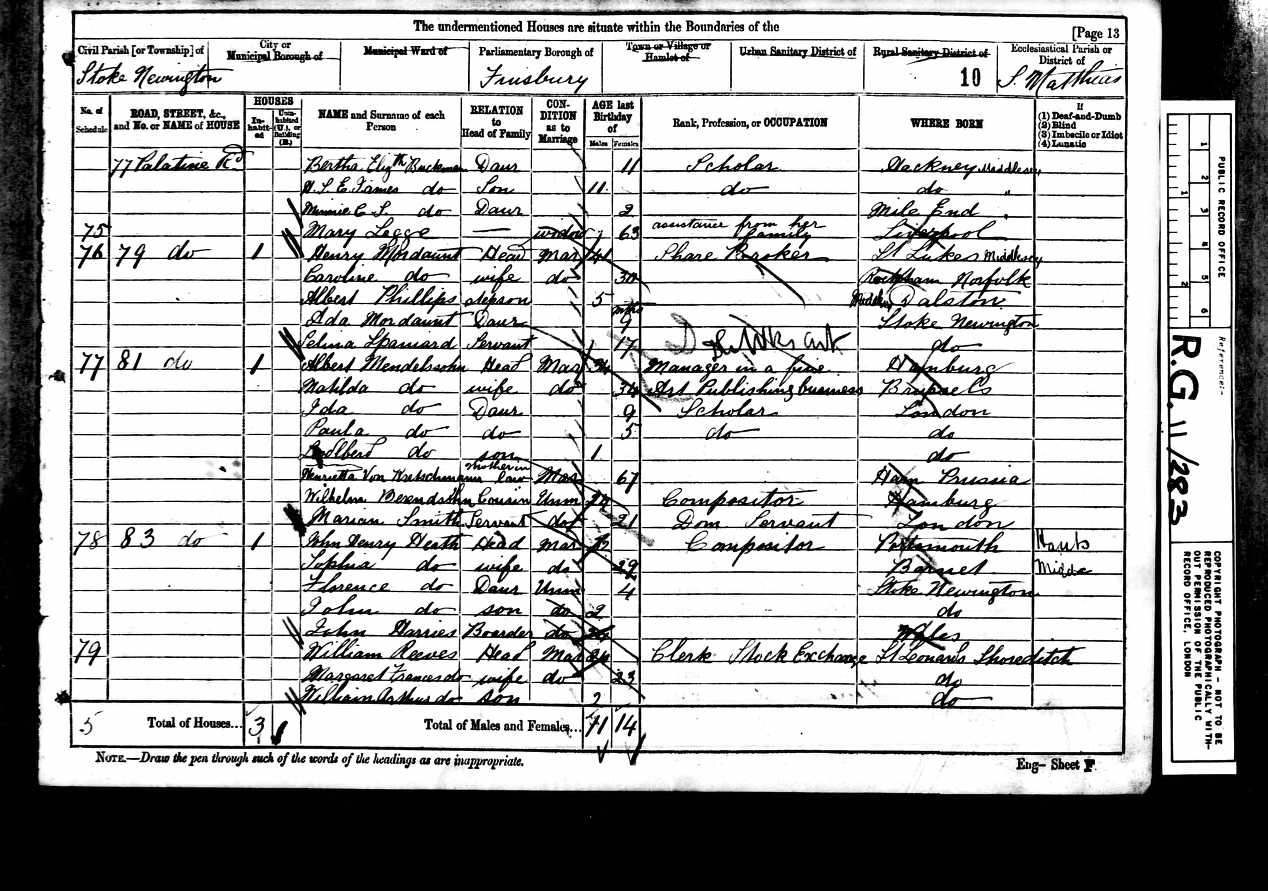 The undermentioned Houses are situate within the Boundaries of the
[Page 13
Civil Parish [or Township] of
Stoke Newington
City or Municipal Borough of
Municipal Ward of
Parliamentary Borough of
Finsbury
Town or Village or Hamlet of
Urban Sanitary District of
Rural Sanitary District of
10
Ecclesiastical Parish or District of
S. Matthias
No. of Schedule
ROAD, STREET, &c., and No. or NAME of HOUSE
HOUSES
In-habit-ed
Unin-habited (U.), or Building (B.)
NAME and Surname of each Person
RELATION to Head of Family
CON-DITION as to Marriage
AGE last Birthday of
Males Females
Rank, Profession, or OCCUPATION
WHERE BORN
If
(1) Deaf-and-Dumb
(2) Blind
(3) Imbecile or Idiot
(4) Lunatic
77 Palatine Rd Bertha Elizth Daur 11 Scholar Hackney Middlesex
James do Son 11 do do "
Minnie C. S. do Daur 2 Mile End "
75 Mary Legge — widow 63 assistance from her family Liverpool
76 79 do 1 Henry Mordaunt Head Mar 41 Share Broker St Lukes Middlesex
Caroline do wife do Norfolk
Albert Phillips stepson 5 Dalston
Ada Mordaunt Daur 9 mths Stoke Newington
Selina Spaniard Servant 17 do
77 81 do 1 Albert Mendelssohn Head Mar Manager in a fine Hamburg
Matilda do wife do 34 Art Publishing business Brussels
Ida do Daur 9 Scholar London
Paula do do 5 do do
do son 1 do
Henrietta Von mother in law Mar 67 Prussia
Wilhelm Berendsohn Cousin Unm Compositor Hamburg
Marian Smith Servant do 21 Dom Servant London
78 83 do 1 John Henry Heath Head Mar Compositor Portsmouth Hants
Sophia do wife do 29 Barnet Middx
Florence do Daur Unm 4 Stoke Newington
John do son do 2 do
John Harries Boarder do Wales
79 William Reeves Head Mar Clerk Stock Exchange St Leonards Shoreditch
Margaret Frances do wife do 23 do
William Arthur do son 2 do
5 Total of Houses... 3 Total of Males and Females... 11 14
NOTE.—Draw the pen through such of the words of the headings as are inappropriate.
Eng— Sheet F.
PUBLIC RECORD OFFICE
1 2 3 4 5 6
1 2
Reference:-
R.G. 11/283
COPYRIGHT PHOTOGRAPH – NOT TO BE REPRODUCED PHOTOGRAPHICALLY WITH-OUT PERMISSION OF THE PUBLIC RECORD OFFICE, LONDON